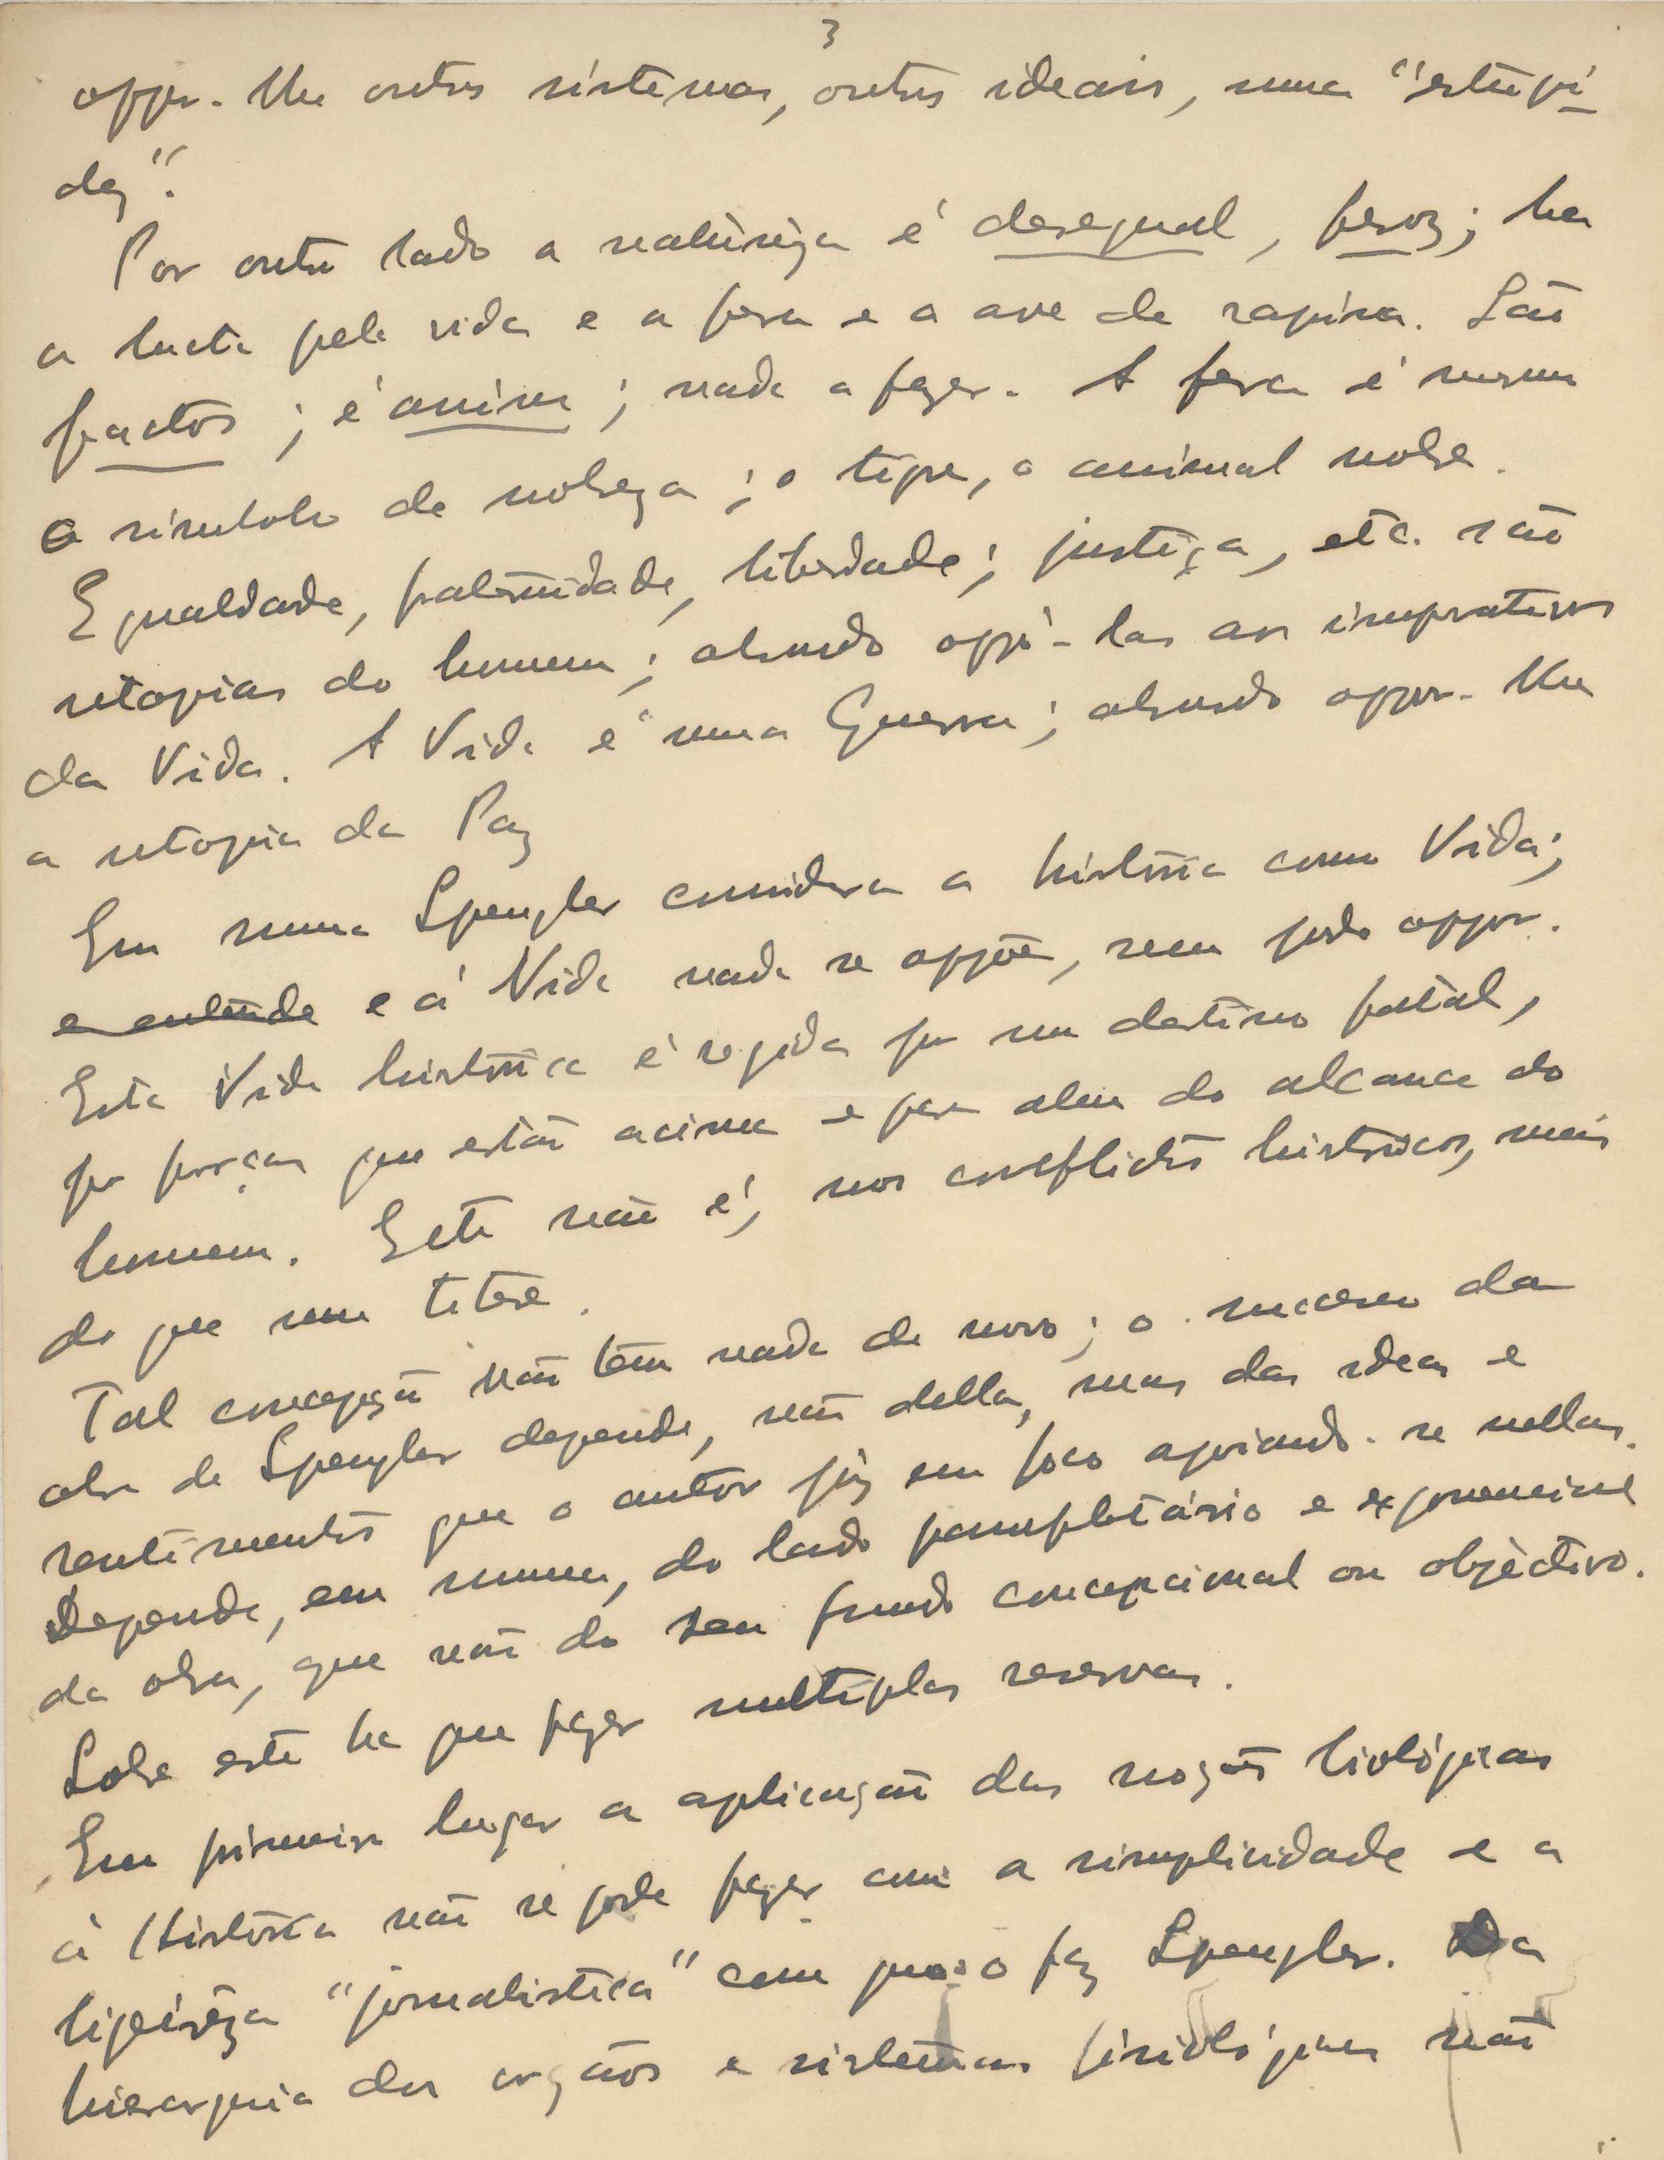 3
oppor-lhe outros sistemas, outros ideais, uma "estupi-
dez".
Por outro lado a naturêza é desegual, feroz; ha
a lucta pela vida e a fera e a ave de rapina. São
factos; é assim; nada a fazer. A fera é mesmo
o simbolo de nobreza; o tipo, o animal nobre.
Egualdade, fraternidade, liberdade; justiça, etc. são
utopias do homem; absurdo oppô-las aos imperativos
da Vida. A Vida é uma Guerra; absurdo oppor-lhe
a utopia da Paz
Em suma Spengler considera a história como Vida;
e entende e á Vida nada se oppõe, nem pode oppor.
Esta Vida histórica é regida por um destino fatal,
por forças que estão acima e para alem do alcance do
homem. Este não é, nos conflictos históricos, mais
do que um titere.
Tal concepção não têm nada de novo; o sucesso da
obra de Spengler depende, não della, mas das ideas e
sentimentos que o autor pôz em foco apoiando-se nellas.
Depende, em summa, do lado pamfletário e exponencial
da obra, que não do seu fundo concepcional ou objèctivo.
Sobre este ha que fazer multiplas reservas.
Em primeiro lugar a aplicação das noções biológicas
á História não se pode fazer com a simplicidade e a
ligeirêza "jornalistica" com que o fez Spengler. Da
hierarquia dos orgãos e sistemas fisiológicos não